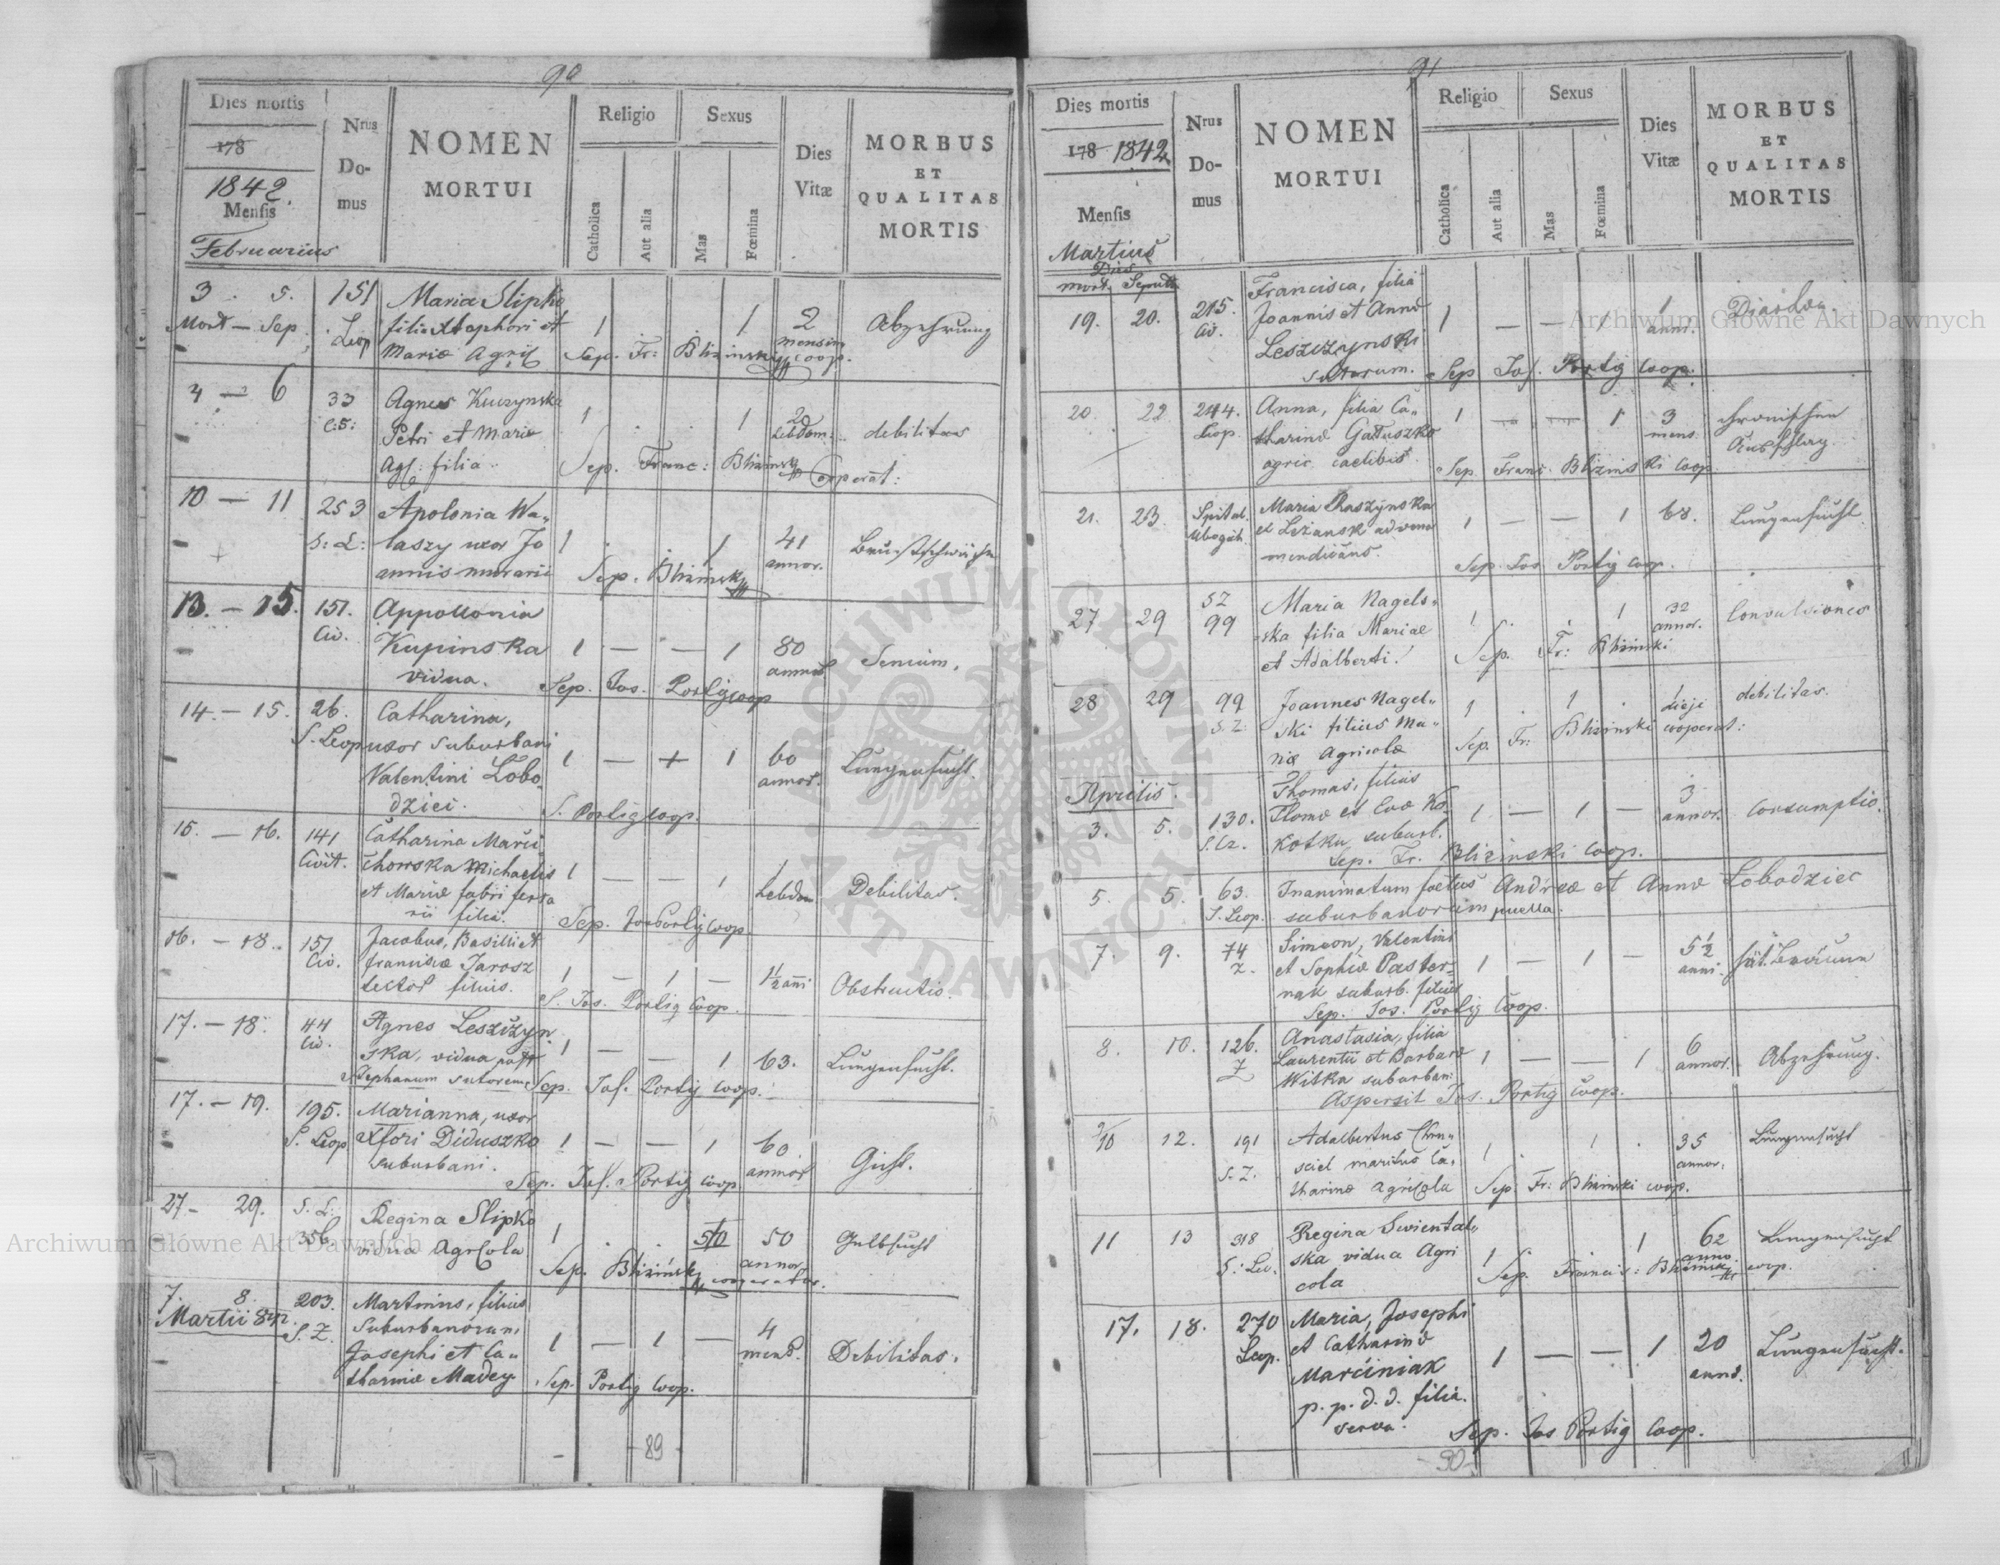 90
Dies mortis
178
1842.
Mensis
Februarius
Nrus
Do-
mus
NOMEN
MORTUI
Religio
Catholica
Aut alia
Sexus
Mas
Fœmina
Dies
Vitæ
MORBUS
ET
QUALITAS
MORTIS
3 . 5.
Mort — Sep.
151
Leop
Maria Slipko
filia Xtophori et
Mariæ Agric
1 . . 1
2
mensium
Abzehrung
Sep. Fr: Bliziński coop.
4 — 6
33
Agnes Kuczynska
Petri et Mariæ
Agr: filia
1 . . 1
2
hebdom:
debilitas
Sep. Franc: Bliziński Cooperat:
10 — 11
253
S: L:
Apolonia Wa-
laszy uxor Jo
annis murarii
1 . . 1
41
annor.
Sep. Bliziński
13. — 15.
151.
Civ.
Appollonia
Kupinska
vidua.
1 — — 1
80
annor
Senium.
Sep. Jos. Portig coop
14. — 15.
26.
S. Leop
Catharina,
uxor suburbani
Valentini Lobo-
dziei.
1 — + 1
60
annor.
Lungensucht.
S. Portig coop.
15. — 16.
141
Civit.
Catharina Marci
chowska Michaelis
et Mariæ fabri ferra
rii filia.
1 — — 1
1
hebdom.
Debilitas.
Sep. Jos Portig coop
16. — 18.
151
Civ.
Jacobus, Basilii et
Franciscæ Jarosz
filius.
1 — 1 —
1 1/2 anni
Obstructio.
S. Jos. Portig Coop.
17. — 18.
44
Civ.
Agnes Leszczyn-
ska, vidua post
Stephanum sutorem
1 — — 1
63.
Lungensucht.
Sep. Jos. Portig coop.
17. — 19.
195.
S. Leop
Marianna, uxor
Xfori Diduszko
suburbani.
1 — — 1
60
annor
Gicht.
Sep. Jos. Portig coop
27 — 29.
S. L:
356
Regina Slipko
vidua Agricola
1 . .
50
annor.
Gelbsucht
Sep. Bliziński cooperator.
7. 8.
Martii 842.
203.
S. Z.
Martinus, filius
suburbanorum
Josephi et Ca-
tharinæ Madey
1 — 1 —
4
mens.
Debilitas.
Sep. Portig Coop.
- 89 -
91
Dies mortis
178 1842
Mensis
Martius
Dies
mort. Sepult.
Nrus
Do-
mus
NOMEN
MORTUI
Religio
Catholica
Aut alia
Sexus
Mas
Fœmina
Dies
Vitæ
MORBUS
ET
QUALITAS
MORTIS
19. 20.
215.
Civ.
Francisca, filia
Joannis et Annæ
Leszczynski
sutorum.
1 — —
1
anni.
Sep Jos. Portig Coop.
20. 22
244.
Leop.
Anna, filia Ca-
tharinæ Gałuszko
agric. caelibis
1 — — 1
3
mens.
chronischer
Ausschlag.
Sep. Franc. Bliziński Coop
21. 23.
Spital.
Maria Raszynska
et Leżansk advena
mendicans.
1 — — 1
68.
Lungensucht.
Sep. Jos Portig Coop.
27 29
S Z
99
Maria Nagels-
ska filia Mariae
et Adalberti.
1 . 1
annor.
Convulsiones
Sep. Fr: Bliziński
28 29
99
S. Z.
Joannes Nagel-
ski filius Ma-
riæ Agricolæ
1 . 1 .
1
debilitas.
Sep. Fr: Bliziński cooperat:
Aprilis.
3. 5.
130.
Thomas, filius
Thomæ et Evæ Ko-
kotku suburb.
1 — 1 —
3
annor.
Consumptio.
Sep. Fr. Bliziński Coop.
5. 5.
63.
S. Leop.
Inanimatum foetus Andreæ et Annæ Lobodziec
suburbanorum puella.
7. 9.
74
Z.
Simeon, Valentini
et Sophiæ Paster-
nak suburb. filius
1 — 1 —
5 1/2
anni.
häut. Bräune
Sep. Jos. Portig Coop.
8. 10.
126.
Z
Anastasia, filia
Laurentii et Barbaræ
Witka suburban:
1 — — 1
6
annor.
Abzehrung.
Aspersit Jos. Portig Coop.
9/10 12.
191
S. Z.
Adalbertus
maritus Ca-
tharinæ Agricola
1 . 1 .
35
annor.
Lungensucht
Sep. Fr: Bliziński coop.
11 13
318
S: Leo.
Regina Swiental-
ska vidua Agri
cola
1 1
62
anno
Lungensucht
Sep. Francis: Bliziński coop.
17. 18.
270
Leop.
Maria, Josephi
et Catharinæ
Marciniak
p. p. d. d. filia.
serva.
1 — — 1
20
annor.
Lungensucht.
Sep. Jos Portig Coop.
- 90 -
Archiwum Główne Akt Dawnych
Archiwum Główne Akt Dawnych
ARCHIWUM GŁÓWNE AKT DAWNYCH